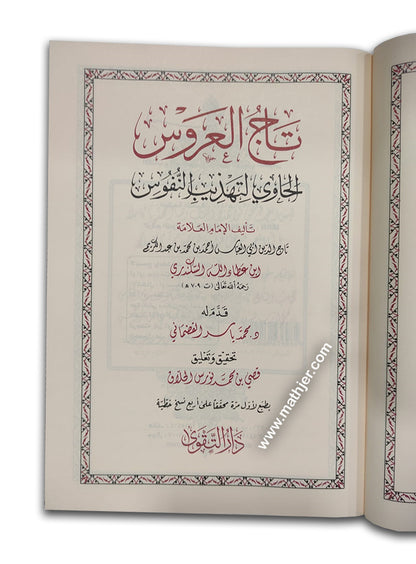 تاج العروس
الحاوي لتهذيب النفوس
تأليف الإمام العلامة
تاج الدين أبي العباس أحمد بن محمد بن عبد الكريم
ابن عطاء الله السكندري
رحمه الله تعالى (ت ٧٠٩ هـ)
قدم له
د. محمد ياسر القضماني
تحقيق وتعليق
قصي بن محمد نورس الحلاق
يطبع لأول مرة محققاً على أربع نسخ خطية
دار التقوى
www.mathjer.com